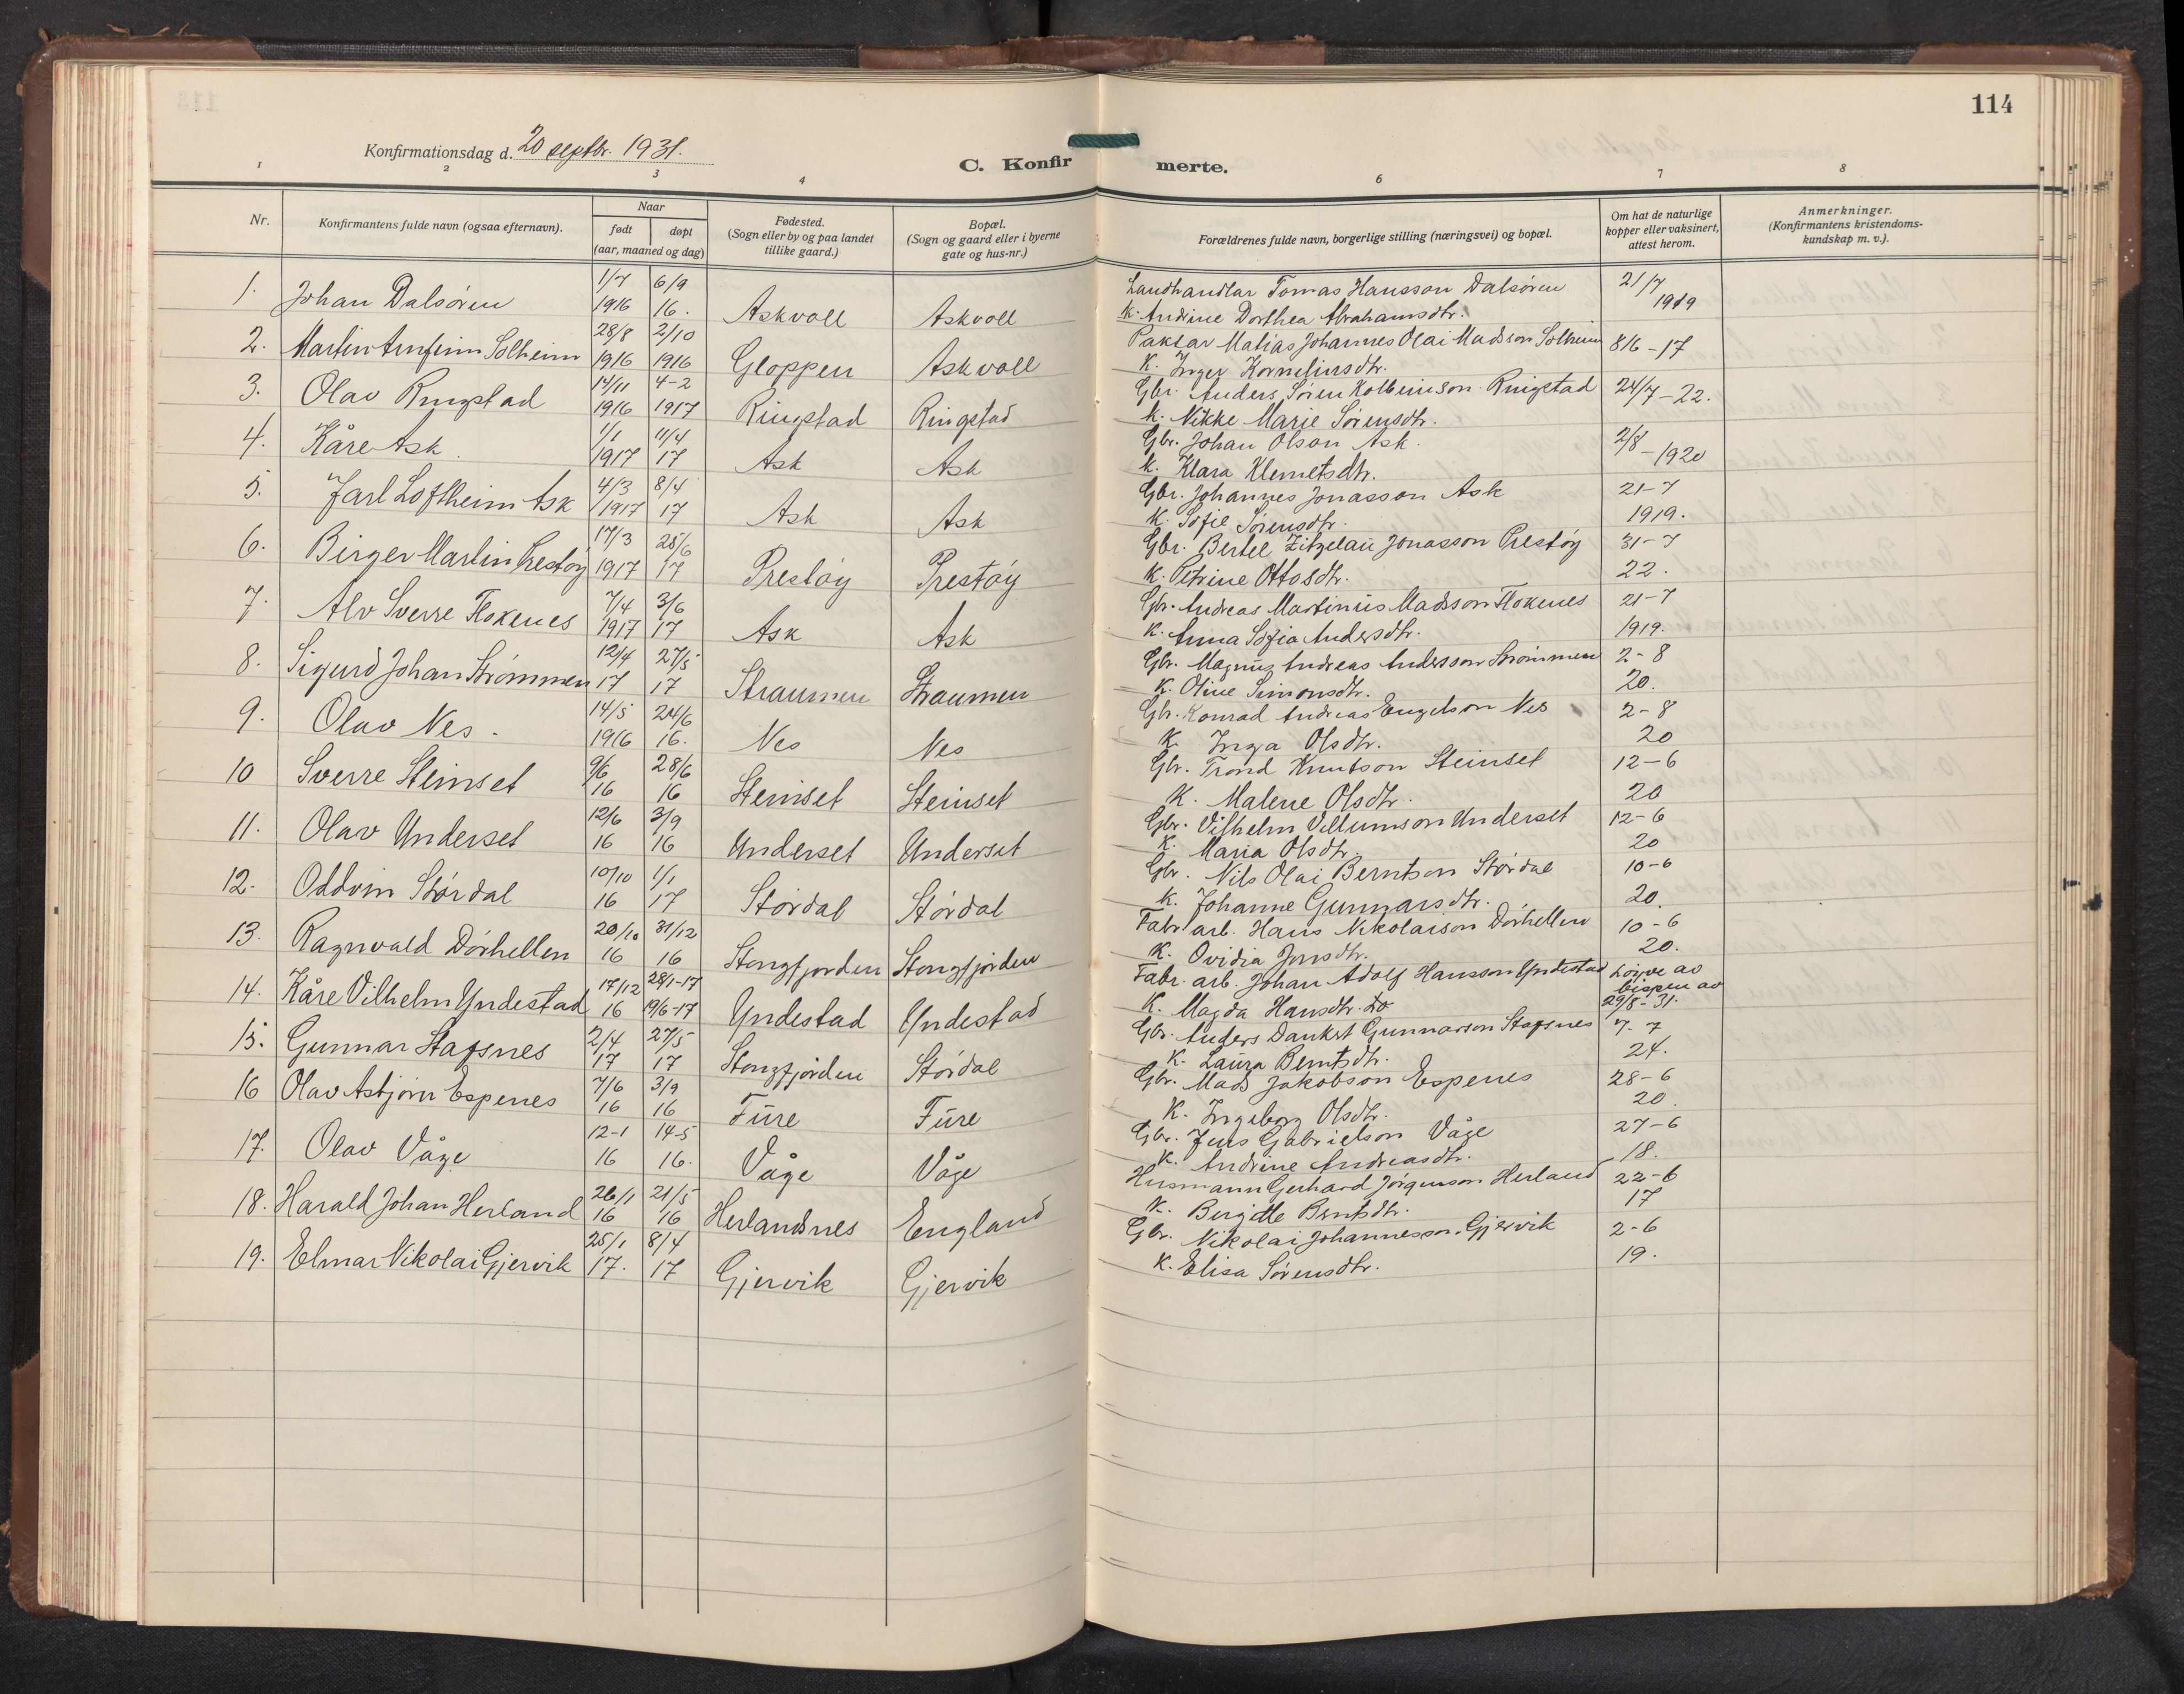 114
Konfirmationsdag d. 20 septbr. 1931.
C. Konfirmerte.
1 2 3 4 6 7 8
Nr.
Konfirmantens fulde navn (ogsaa efternavn).
Naar
født døpt
(aar, maaned og dag)
Fødested.
(Sogn eller by og paa landet
tillike gaard.)
Bopæl.
(Sogn og gaard eller i byerne
gate og hus-nr.)
Forældrenes fulde navn, borgerlige stilling (næringsvei) og bopæl.
Om hat de naturlige
kopper eller vaksinert,
attest herom.
Anmerkninger.
(Konfirmantens kristendoms-
kundskap m. v.).
1. Johan Dalsøren 1/7 1916 6/9 16. Askvoll Askvoll Landhandlar Tomas Hansson Dalsøren 21/7 1919
K. Andrine Dorthea Abrahamsdtr.
2. Martin Arnfinn Solheim 28/8 1916 2/10 1916 Gloppen Askvoll Paktar Matias Johannes Olai Madsson Solheim 8/6-17
K. Inger Korneliusdtr.
3. Olav Ringstad 14/11 1916 4-2 1917 Ringstad Ringstad Gbr. Anders Søren Kolbeinson Ringstad 24/7-22.
K. Nikke Marie Sørensdtr.
4. Kåre Ask 1/1 1917 11/4 17 Ask Ask Gbr. Johan Olson Ask. 2/8-1920
K. Klara Klemetsdtr.
5. Jarl Loftheim Ask 4/3 1917 8/4 17 Ask Ask Gbr. Johannes Jonasson Ask 21-7
K. Sofie Sørensdtr. 1919.
6. Birger Martin Prestøy 17/3 1917 25/6 17 Prestøy Prestøy Gbr. Bertel Zitzelau Jonasson Prestøy 31-7
K. Petrine Ottosdtr. 22.
7. Alv Sverre Flokenes 7/4 1917 3/6 17 Ask Ask Gbr. Andreas Martinus Madsson Flokenes 21-7
K. Anna Sofia Andersdtr. 1919.
8. Sigurd Johan Strømmen 12/4 17 27/5 17 Straumen Straumen Gbr. Magnus Andreas Andersson Strømmen 2-8
K. Oline Simonsdtr. 20.
9. Olav Nes. 14/5 1916 24/6 16. Nes Nes Gbr. Konrad Andreas Engelson Nes 2-8
K. Inga Olsdtr. 20
10 Sverre Steinset 9/6 16 28/6 16 Steinset Steinset Gbr. Trond Knutson Steinset 12-6
K. Malene Olsdtr. 20
11. Olav Underset 12/6 16 3/9 16 Underset Underset Gbr. Vilhelm Villumson Underset 12-6
K. Maria Olsdtr. 20
12. Oddvin Stórdal 10/10 16 1/1 17 Stórdal Stórdal Gbr. Nils Olai Berntson Stórdal 10-6
K. Johanne Gunnarsdtr. 20.
13. Ragnvald Dórhellen 20/10 16 31/12 16 Stongfjorden Stongfjórden Fabr. arb. Hans Nikolaison Dórhellen 10-6
K. Ovidia Jensdtr. 20.
14. Kåre Vilhelm Yndestad 17/12 16 28/1-17 19/6-17 Yndestad Yndestad Fabr. arb. Johan Adolf Hansson Yndestad Lóyve av
K. Magda Hansdtr. Do bispen av
29/8-31.
15. Gunnar Stafsnes 2/4 17 27/5 17 Stongfjórden Stórdal Gbr. Anders Dankert Gunnarson Stafsnes 7-7
K. Laura Berntsdtr. 24.
16 Olav Asbjørn Espenes 7/6 16 3/9 16 Fure Fure Gbr. Mads Jakobson Espenes 28-6
K. Ingeborg Olsdtr. 20.
17. Olav Våge 12-1 16 14-5 16. Våge Våge Gbr. Jens Gabrielson Våge 27-6
K. Andrine Andreasdtr. 18.
18. Harald Johan Herland 26/1 16 21/5 16 Herlandsnes England Husmann Gerhard Jørgenson Herland 22-6
K. Bergitte Berntsdtr. 17
19. Elmar Nikolai Gjervik 25/1 17. 8/4 17 Gjervik Gjervik Gbr. Nikolai Johannesson Gjervik 2-6
K. Elisa Sørensdtr. 19.